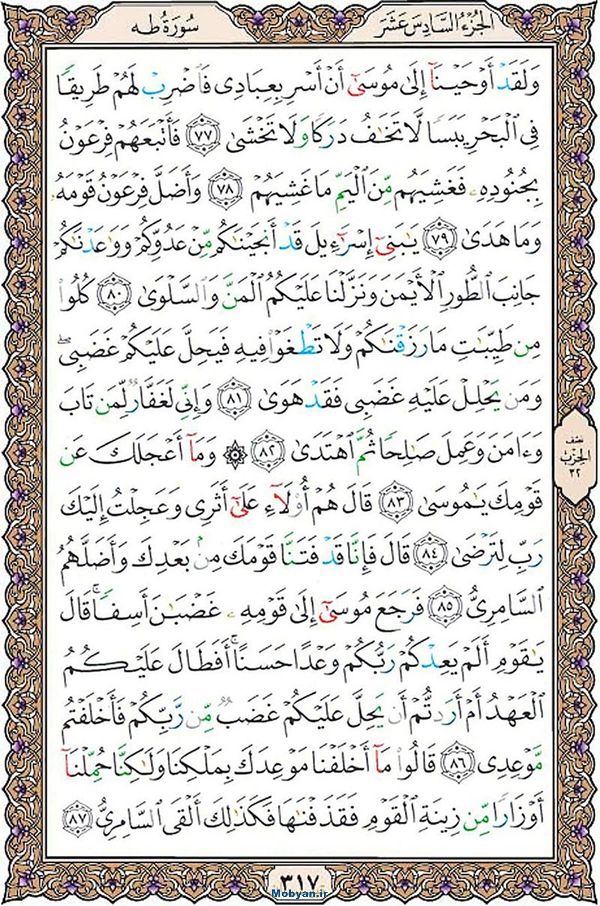 الجُزْءُ السَّادِسَ عَشَرَ
سُورَةُ طه
وَلَقَدْ أَوْحَيْنَآ إِلَىٰ مُوسَىٰٓ أَنْ أَسْرِ بِعِبَادِى فَٱضْرِبْ لَهُمْ طَرِيقًا
فِى ٱلْبَحْرِ يَبَسًا لَّا تَخَٰفُ دَرَكًا وَلَا تَخْشَىٰ ﴿٧٧﴾ فَأَتْبَعَهُمْ فِرْعَوْنُ
بِجُنُودِهِۦ فَغَشِيَهُم مِّنَ ٱلْيَمِّ مَا غَشِيَهُمْ ﴿٧٨﴾ وَأَضَلَّ فِرْعَوْنُ قَوْمَهُۥ
وَمَا هَدَىٰ ﴿٧٩﴾ يَٰبَنِىٓ إِسْرَٰٓءِيلَ قَدْ أَنجَيْنَٰكُم مِّنْ عَدُوِّكُمْ وَوَٰعَدْنَٰكُمْ
جَانِبَ ٱلطُّورِ ٱلْأَيْمَنَ وَنَزَّلْنَا عَلَيْكُمُ ٱلْمَنَّ وَٱلسَّلْوَىٰ ﴿٨٠﴾ كُلُوا۟
مِن طَيِّبَٰتِ مَا رَزَقْنَٰكُمْ وَلَا تَطْغَوْا۟ فِيهِ فَيَحِلَّ عَلَيْكُمْ غَضَبِى ۖ
وَمَن يَحْلِلْ عَلَيْهِ غَضَبِى فَقَدْ هَوَىٰ ﴿٨١﴾ وَإِنِّى لَغَفَّارٌ لِّمَن تَابَ
وَءَامَنَ وَعَمِلَ صَٰلِحًا ثُمَّ ٱهْتَدَىٰ ﴿٨٢﴾ ۞ وَمَآ أَعْجَلَكَ عَن
نصف
الحزب
٣٢
قَوْمِكَ يَٰمُوسَىٰ ﴿٨٣﴾ قَالَ هُمْ أُو۟لَآءِ عَلَىٰٓ أَثَرِى وَعَجِلْتُ إِلَيْكَ
رَبِّ لِتَرْضَىٰ ﴿٨٤﴾ قَالَ فَإِنَّا قَدْ فَتَنَّا قَوْمَكَ مِنۢ بَعْدِكَ وَأَضَلَّهُمُ
ٱلسَّامِرِىُّ ﴿٨٥﴾ فَرَجَعَ مُوسَىٰٓ إِلَىٰ قَوْمِهِۦ غَضْبَٰنَ أَسِفًا ۚ قَالَ
يَٰقَوْمِ أَلَمْ يَعِدْكُمْ رَبُّكُمْ وَعْدًا حَسَنًا ۚ أَفَطَالَ عَلَيْكُمُ
ٱلْعَهْدُ أَمْ أَرَدتُّمْ أَن يَحِلَّ عَلَيْكُمْ غَضَبٌ مِّن رَّبِّكُمْ فَأَخْلَفْتُم
مَّوْعِدِى ﴿٨٦﴾ قَالُوا۟ مَآ أَخْلَفْنَا مَوْعِدَكَ بِمَلْكِنَا وَلَٰكِنَّا حُمِّلْنَآ
أَوْزَارًا مِّن زِينَةِ ٱلْقَوْمِ فَقَذَفْنَٰهَا فَكَذَٰلِكَ أَلْقَى ٱلسَّامِرِىُّ ﴿٨٧﴾
٣١٧
Mobyan.ir